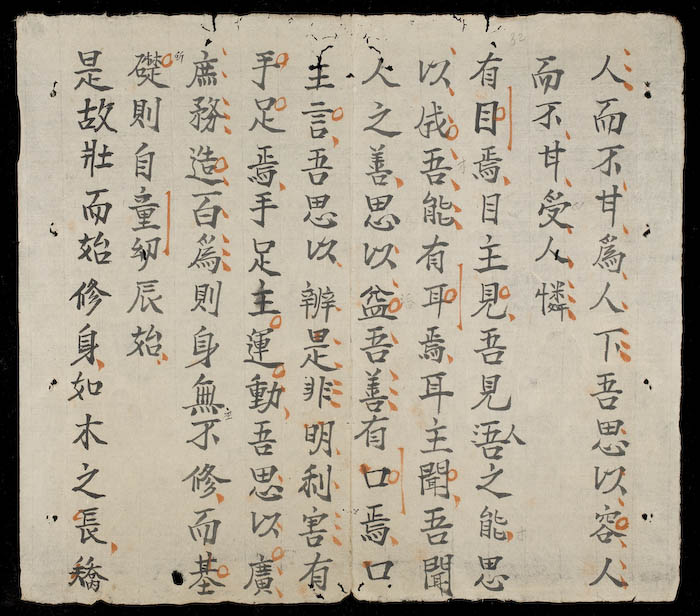 人而不甘為人下吾思以容人
而不甘受人憐
有目焉目主見吾見人之能思
以成吾能有耳焉耳主聞吾聞
人之善思以益吾善有口焉口
主言吾思以辨是非明利害有
手足焉手足主運動吾思以廣
庶務造百為則身無不修而基
礎則自童幼辰始
是故壯而始修身如木之長矯